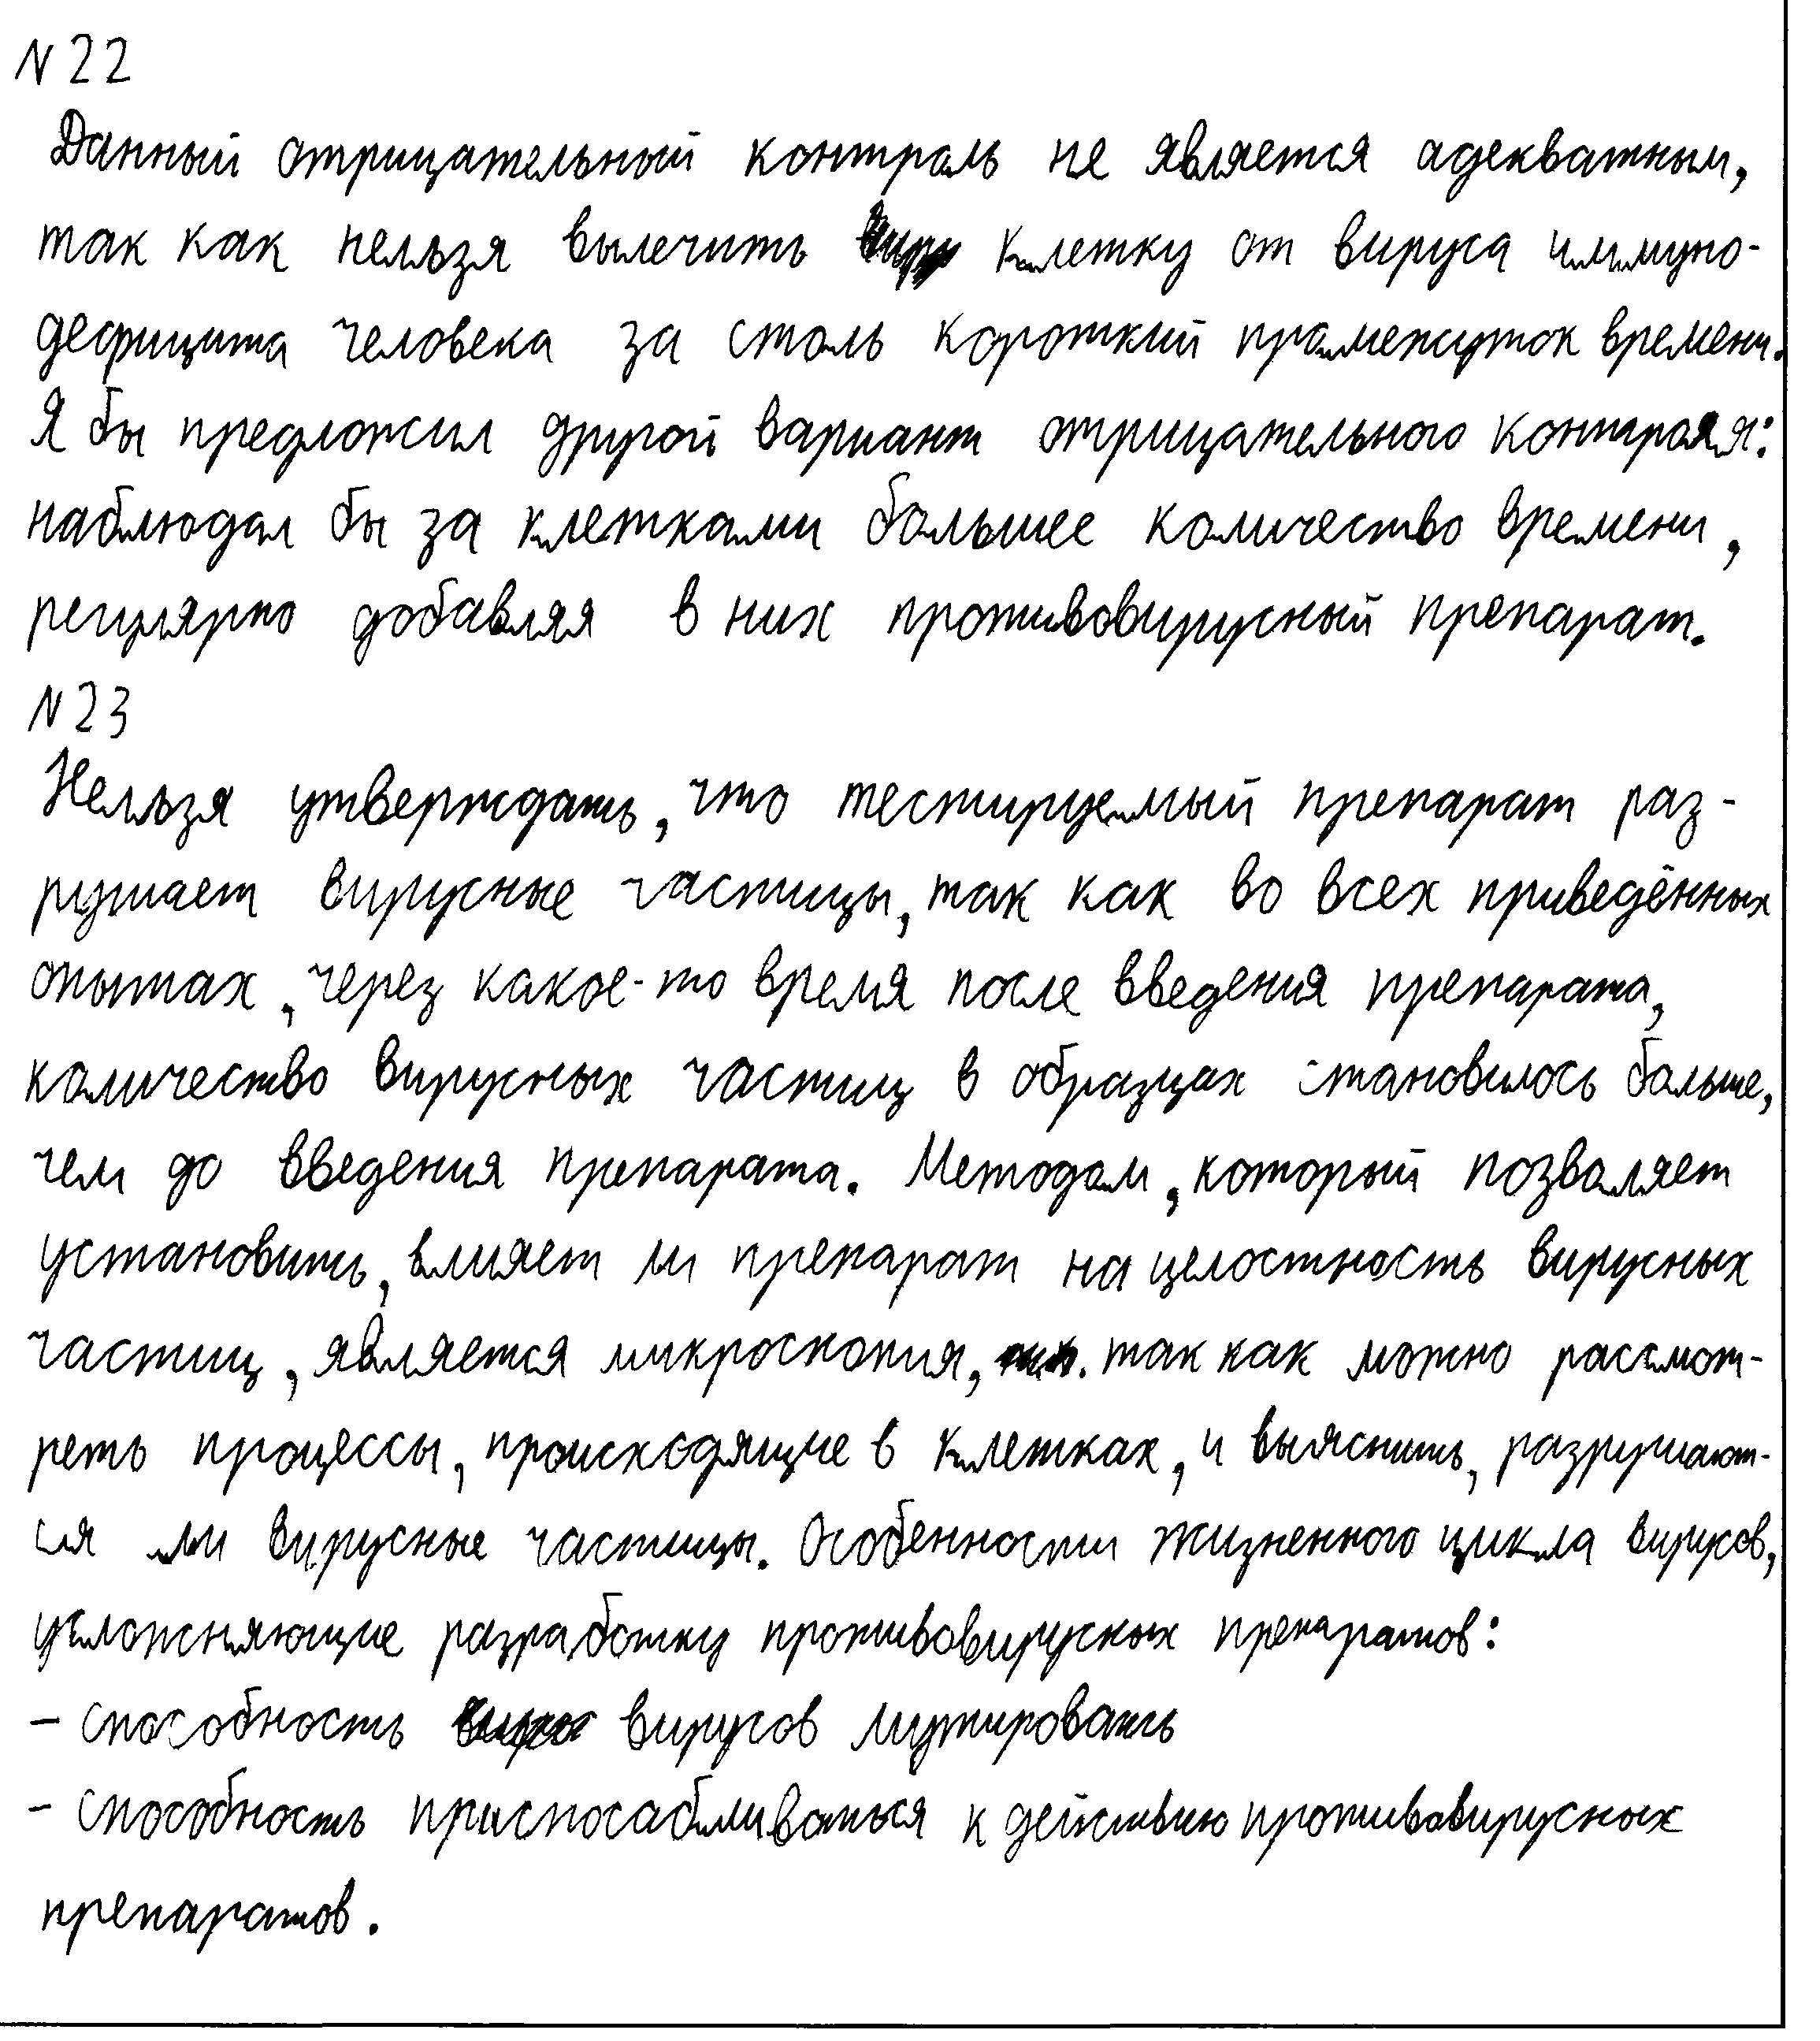 N 22
Данный отрицательный контроль не является адекватным,
так как нельзя вылечить клетку от вируса иммуно-
дефицита человека за столь короткий промежуток времени.
Я бы предложил другой вариант отрицательного контроля:
наблюдал бы за клетками большее количество времени,
регулярно добавляя в них противовирусный препарат.
N 23
Нельзя утверждать, что тестируемый препарат раз-
рушает вирусные частицы, так как во всех приведённых
опытах, через какое-то время после введения препарата,
количество вирусных частиц в образцах становилось больше,
чем до введения препарата. Методом, который позволяет
установить, влияет ли препарат на целостность вирусных
частиц, является микроскопия, так как можно рассмот-
реть процессы, происходящие в клетках, и выяснить, разрушают-
ся ли вирусные частицы. Особенности жизненного цикла вирусов,
усложняющие разработку противовирусных препаратов:
- способность вирусов мутировать
- способность приспосабливаться к действию противовирусных
препаратов.